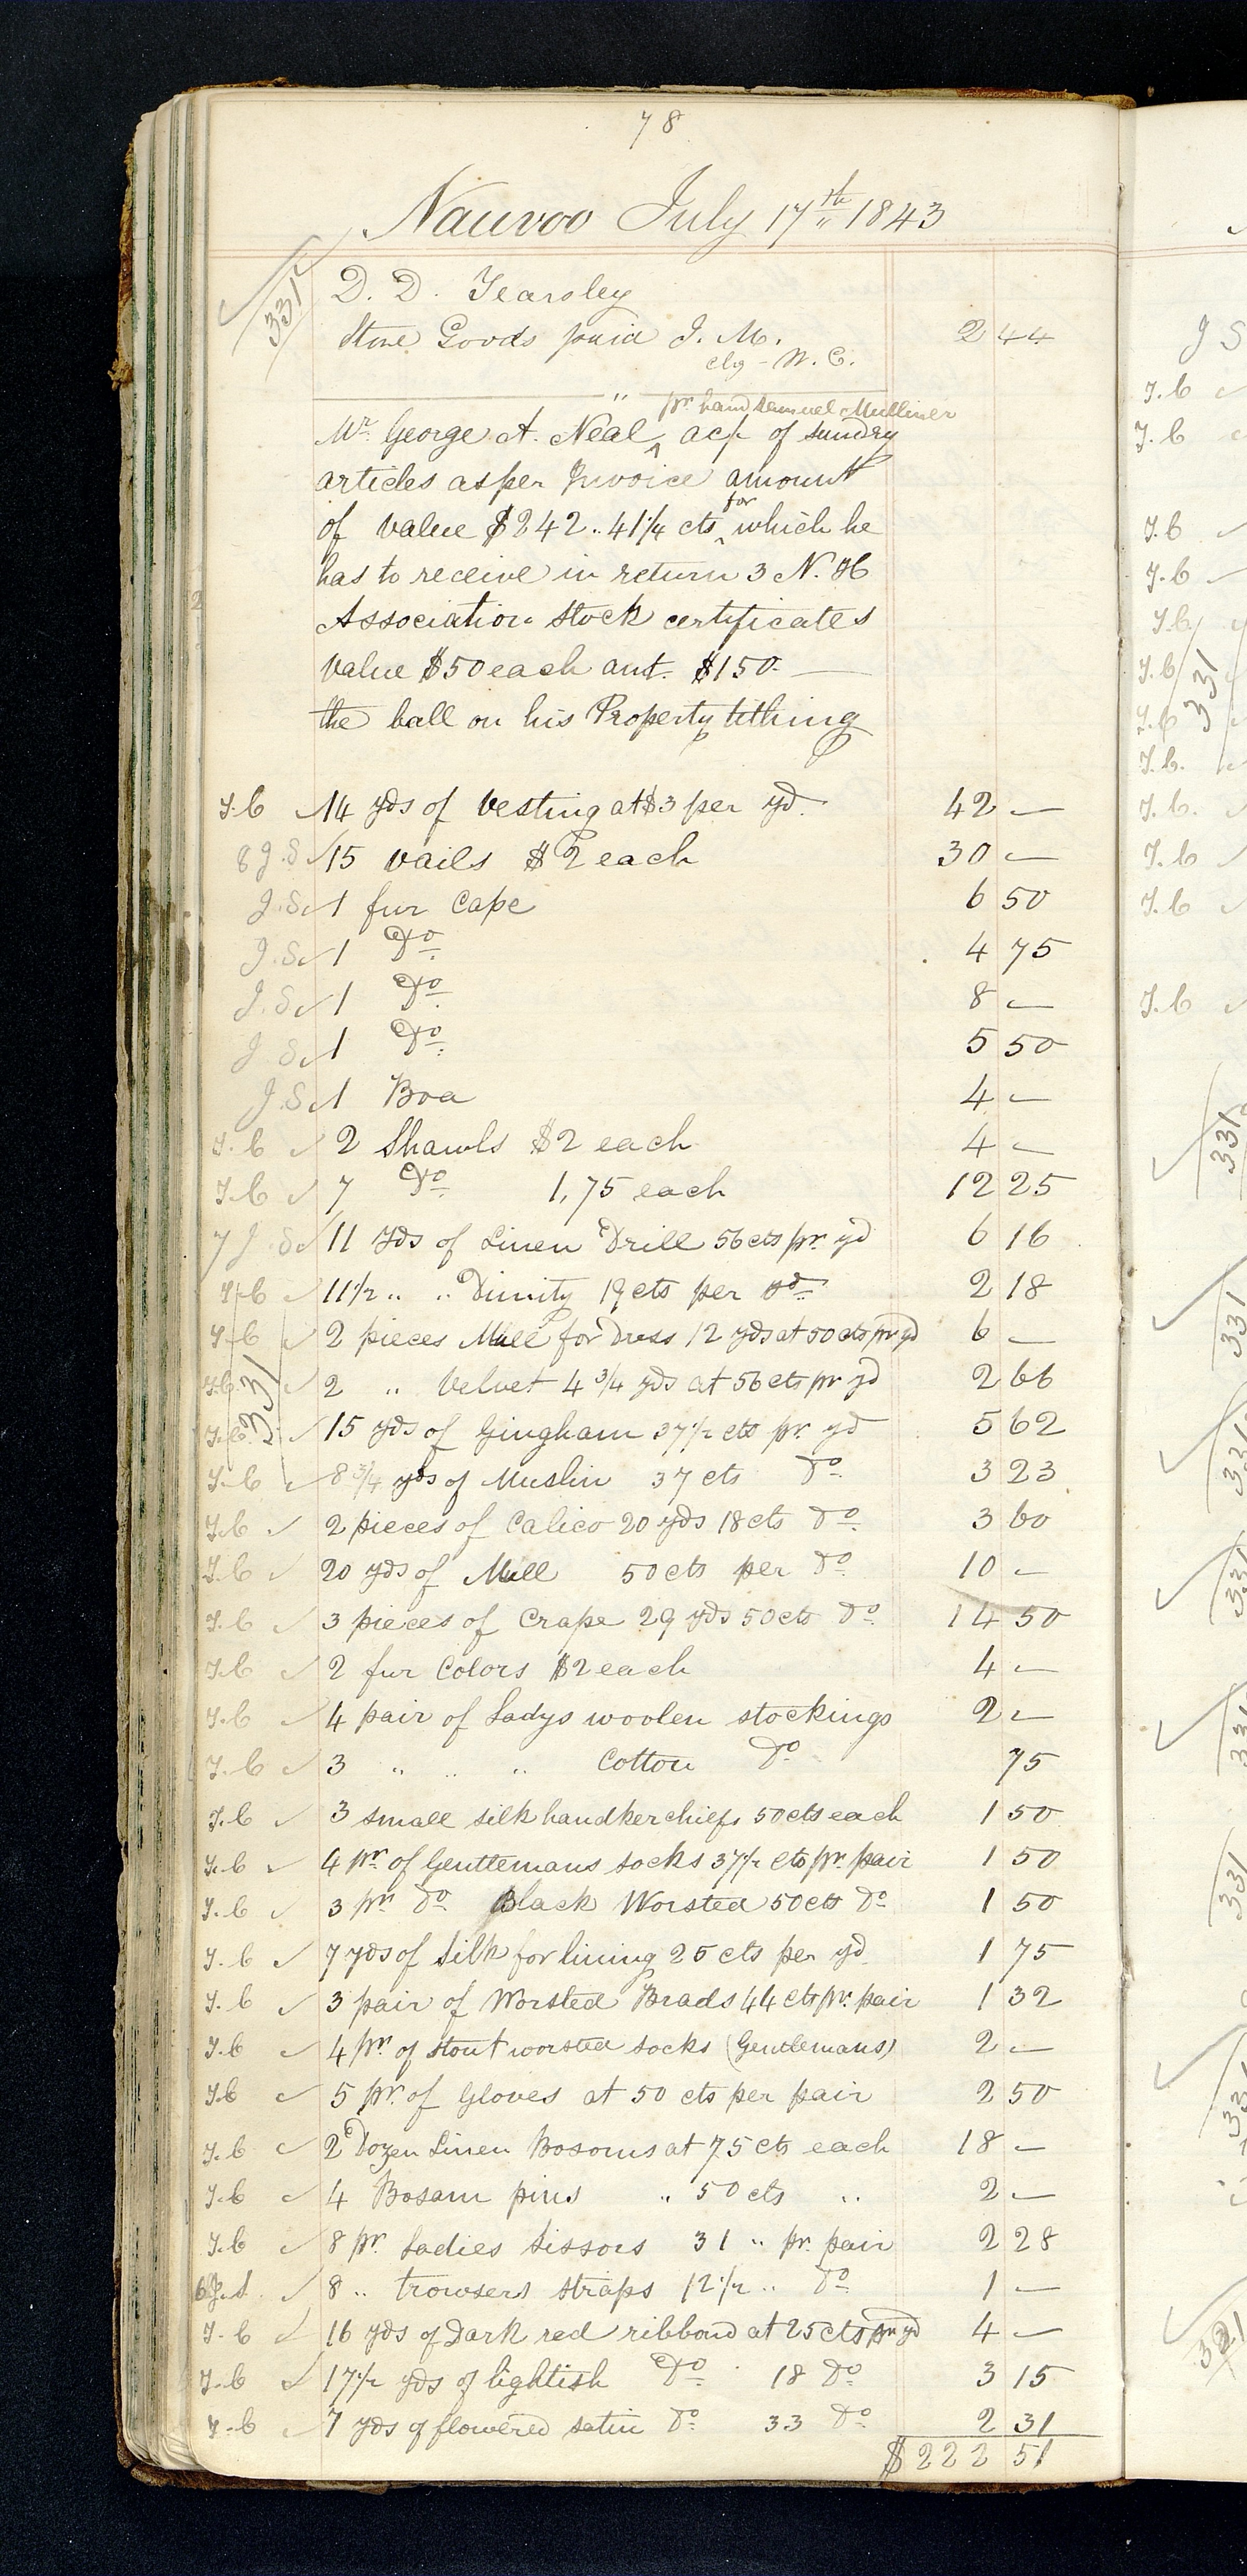 78
Nauvoo July 17th 1843
331 D. D. Yearsley
Store Goods paid J. M. 2 44
clg - W. C.
"
pr hand Samuel Mulliner
Mr. George A. Neal ^ ac/- of sundry
articles as per Invoice amount
for
of value $242..41 1/4 cts ^ which he
has to receive in return 3 N. H
Association Stock certificates
value $50 each amt. $150.—
the ball on his Property tithing
T.C ✓ 14 yds of Vesting at $3 per yd. 42 —
8 J.S ✓ 15 Vails $2 each 30 —
J.S ✓ 1 fur Cape 6 50
J.S ✓ 1 Do 4 75
J.S ✓ 1 Do 8 —
J.S ✓ 1 Do 5 50
J.S ✓ 1 Boa 4 —
T.C ✓ 2 Shawls $2 each 4 —
T.C ✓ 7 Do 1,75 each 12 25
7 J.S ✓ 11 Yds of Linen Drill 56 cts pr yd 6 16
T.C ✓ 11 1/2 " " Dimity 19 cts per yd 2 18
T.C ✓ 2 pieces Mull for Dress 12 yds at 50 cts pr yd 6 —
T.C ✓ 2 " Velvet 4 3/4 yds at 56 cts pr yd 2 66
331
T.C ✓ 15 yds of Gingham 37 1/2 cts pr yd 5 62
T.C ✓ 8 3/4 yds of Muslin 37 cts Do 3 23
T.C ✓ 2 pieces of Calico 20 yds 18 cts Do 3 60
T.C ✓ 20 yds of Mull 50 cts per Do 10 —
T.C ✓ 3 pieces of Crape 29 yds 50 cts Do 14 50
T.C ✓ 2 fur Colors $2 each 4 —
T.C ✓ 4 pair of Ladys woolen stockings 2 —
T.C ✓ 3 " " " Cotton Do 75
T.C ✓ 3 small silk handkerchiefs 50 cts each 1 50
T.C ✓ 4 pr. of Gentlemans socks 37 1/2 cts pr. pair 1 50
T.C ✓ 3 pr. Do Black Worsted 50 cts Do 1 50
T.C ✓ 7 yds of Silk for lining 25 cts per yd 1 75
T.C ✓ 3 pair of Worsted Brads 44 cts pr. pair 1 32
T.C ✓ 4 pr. of stout worsted socks (Gentlemans) 2 —
T.C ✓ 5 pr. of Gloves at 50 cts per pair 2 50
T.C ✓ 2 Dozen Linen Bosoms at 75 cts each 18 —
T.C ✓ 4 Bosam pins " 50 cts " 2 —
T.C ✓ 8 pr. Ladies Sissors 31 " pr. pair 2 28
6 J.S. ✓ 8 " trowsers straps 12 1/2 " Do 1 —
T.C ✓ 16 yds of Dark red ribbond at 25 cts pr yd 4 —
T.C ✓ 17 1/2 yds of lightish Do 18 Do 3 15
T.C ✓ 7 yds of flowered satin Do 33 Do 2 31
$222 51